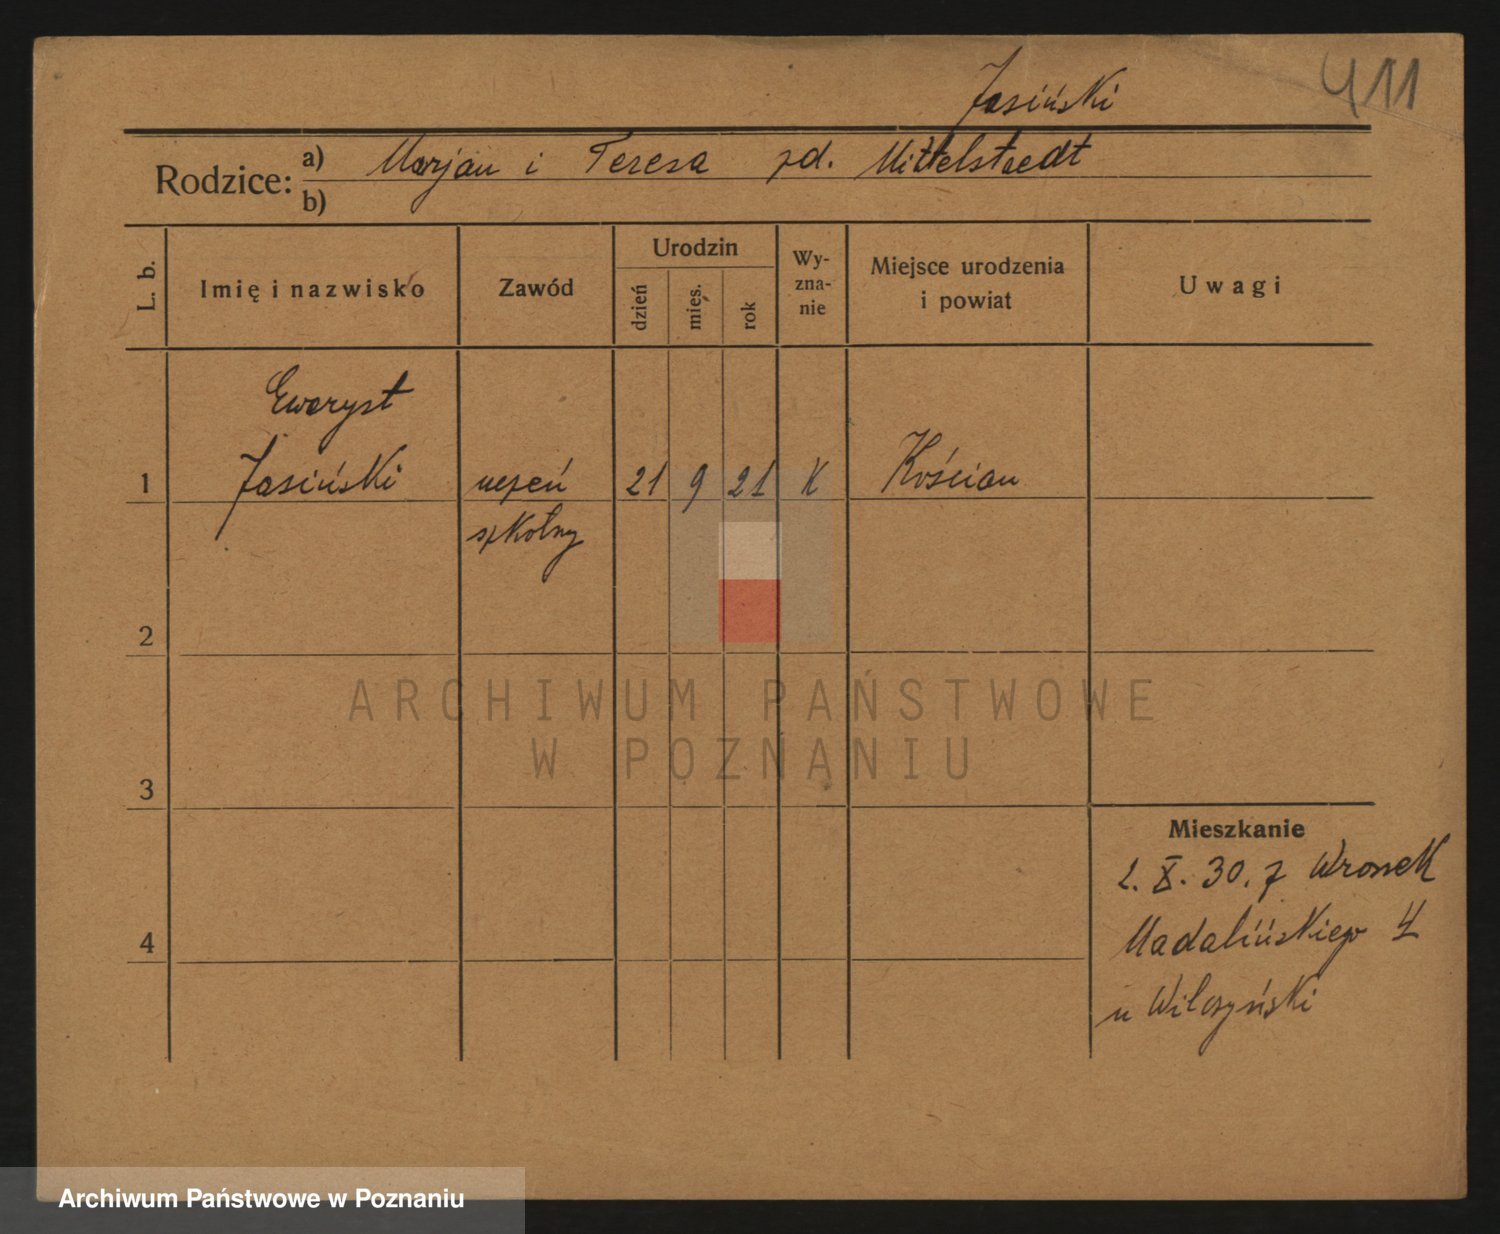 411
Jasiński
Rodzice: a) Marjan i Teresa zd. Mittelstaedt
b)
L. b. Imię i nazwisko Zawód Urodzin dzień mies. rok Wyznanie Miejsce urodzenia i powiat Uwagi
Ewaryst
1 Jasiński uczeń 21 9 21 K Kościan
szkolny
2
ARCHIWUM PAŃSTWOWE
W POZNANIU
3
Mieszkanie
2. X. 30. z Wronek
4 Madalińskiego 4
u Wilczyński
Archiwum Państwowe w Poznaniu